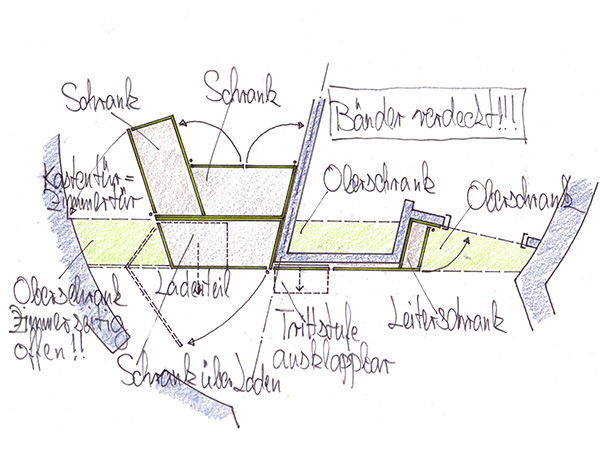 Schrank
Schrank
Bänder verdeckt!!!
Kastentür =
Zimmertür
Oberschrank
Oberschrank
Oberschrank
Zimmerseitig
offen!!
Ladenteil
Trittstufe
ausklappbar
Leiterschrank
Schrank über Laden